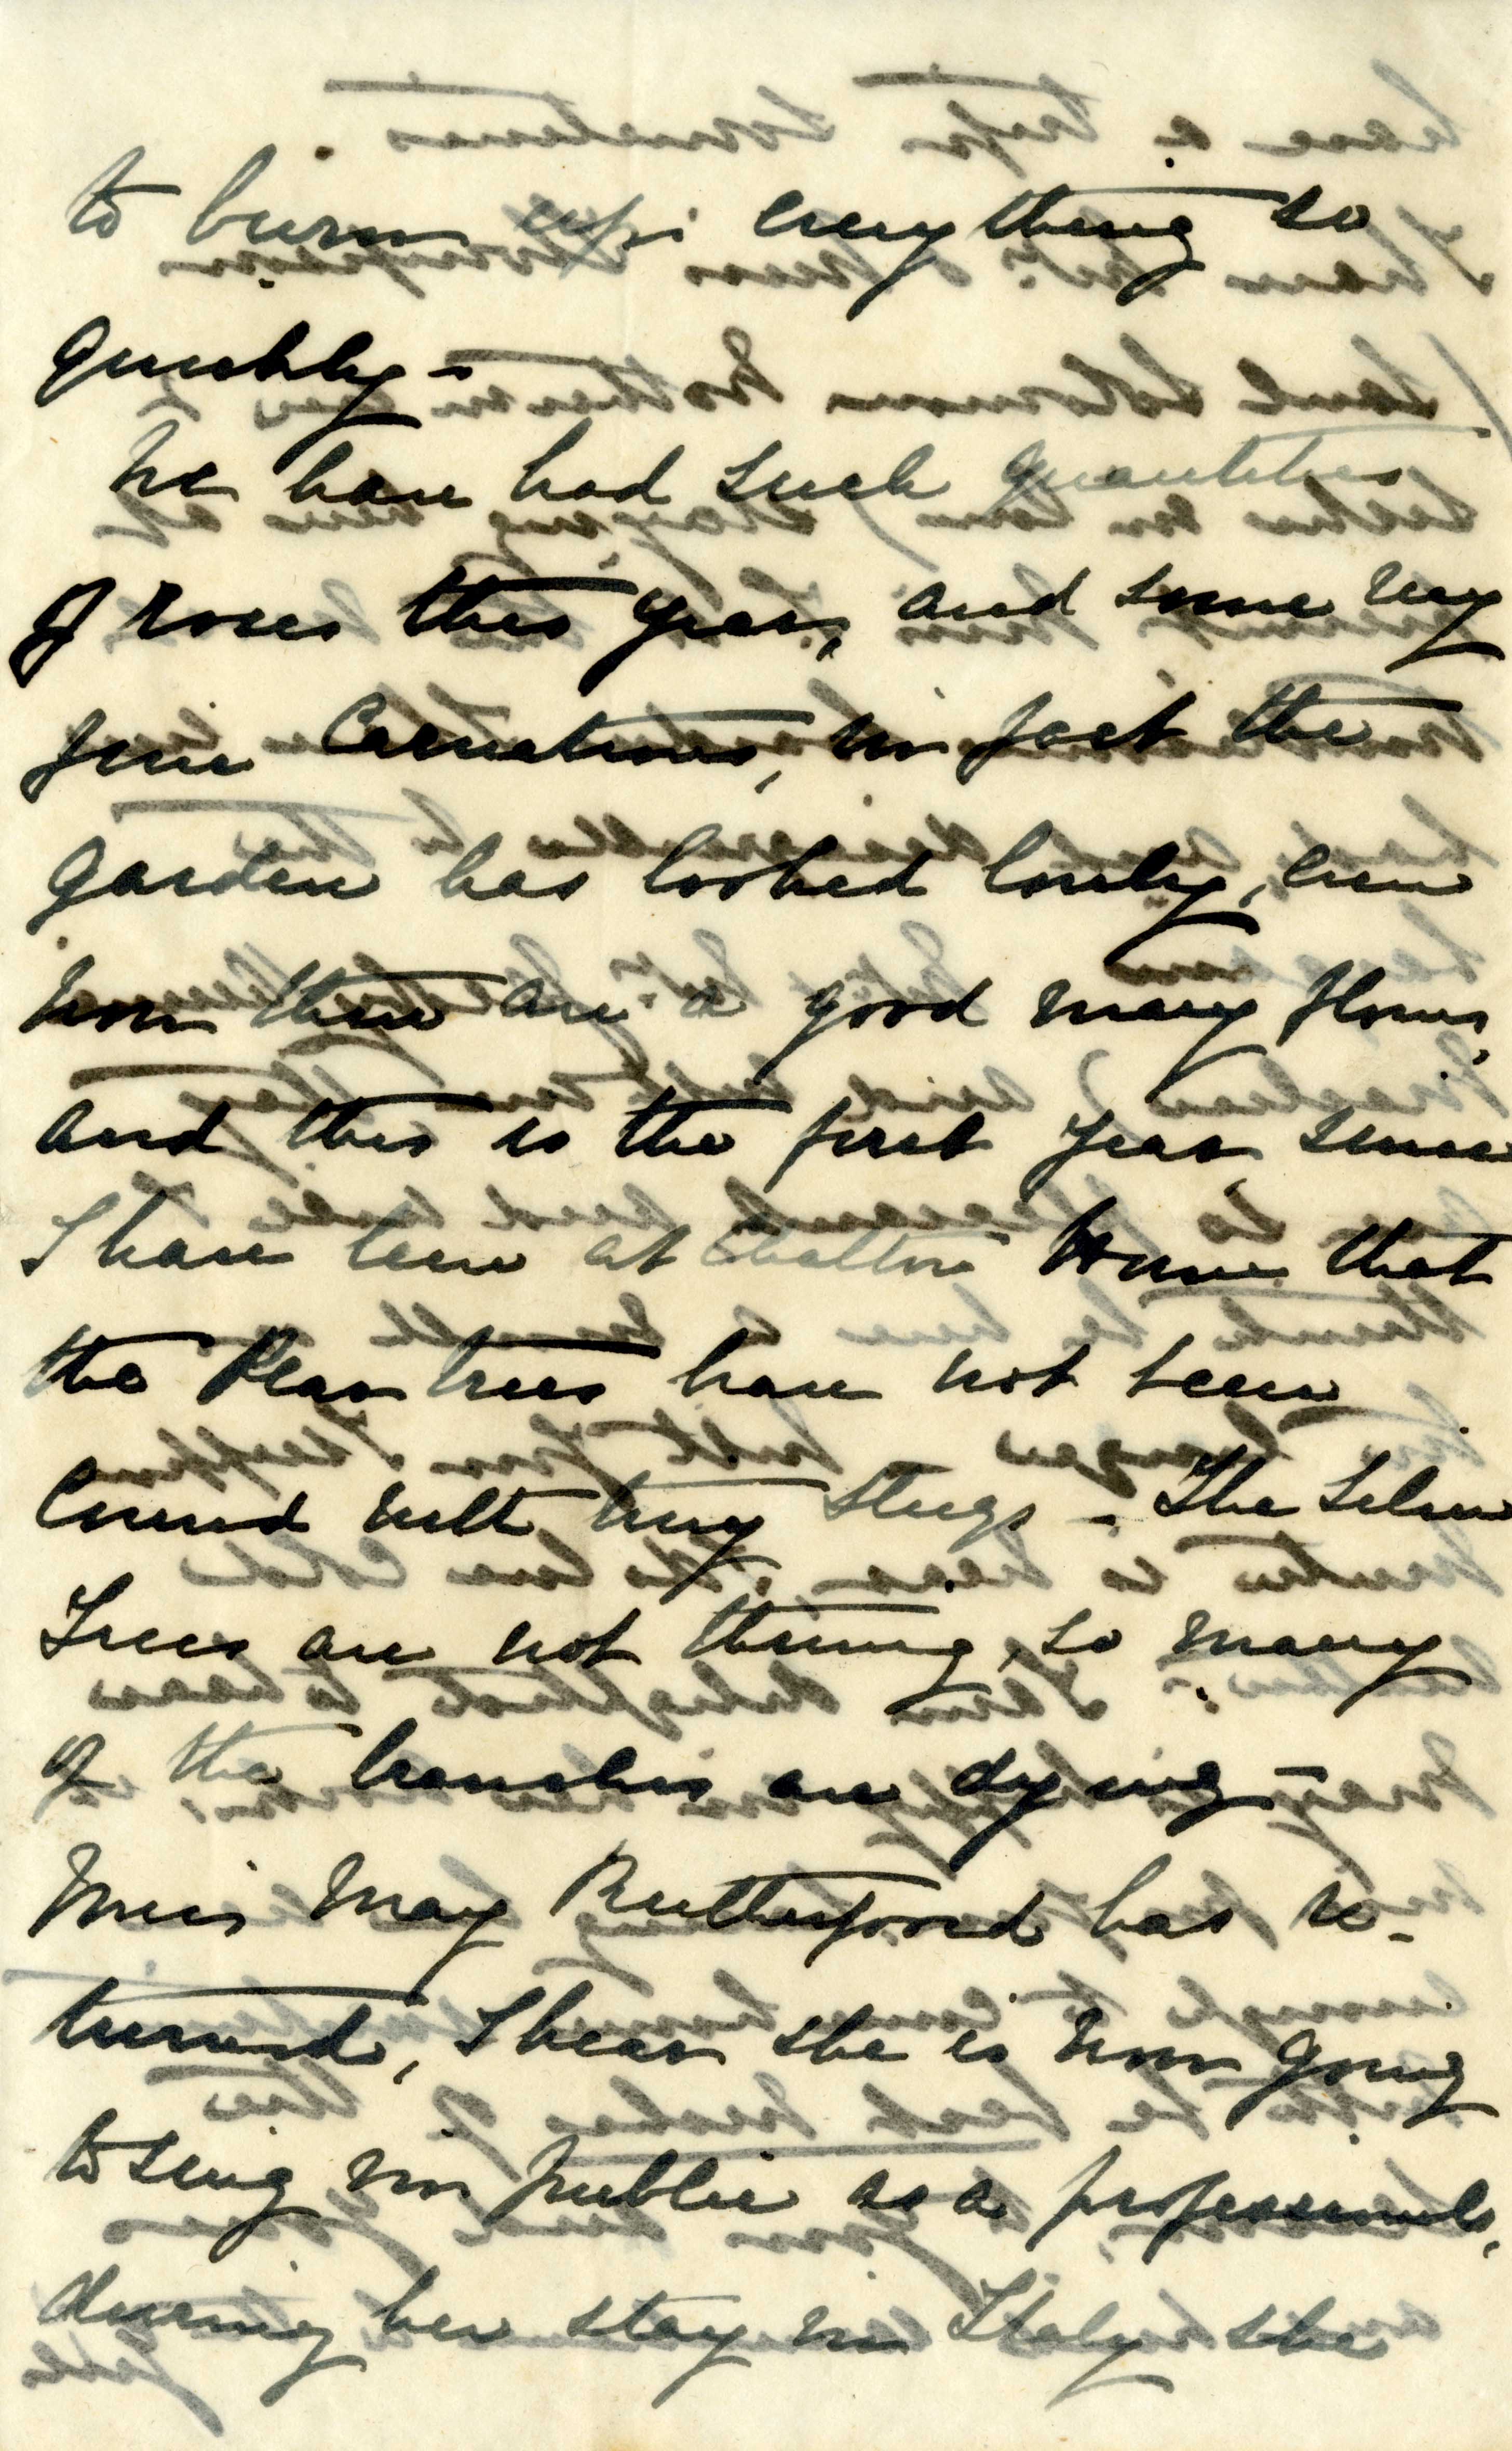 to burn up everything so
quickly -
We have had such quantities
of roses this year, and some very
fine Carnations, in fact the
garden has looked lovely, even
now there are a good many flowers,
and this is the first year since
I have been at Chalton House that
the Pear trees have not been
covered with tiny slugs - The Silver
Trees are not thriving, so many
of the branches are dying -
Miss May Rutherfoord has re-
turned, I hear she is now going
to sing in public as a professional,
during her stay in Italy she